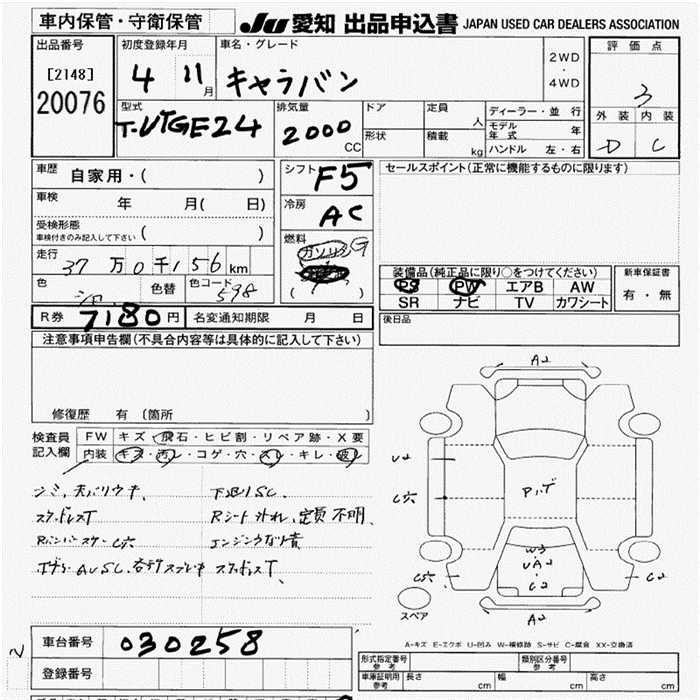 車内保管・守衛保管
JU 愛知 出品申込書 JAPAN USED CAR DEALERS ASSOCIATION
出品番号
[2148]
20076
初度登録年月
4 11 月
車名・グレード
キャラバン
2WD
・
4WD
評価点
3
外装 内装
D C
型式
T-VTGE24
排気量
2000
CC
ドア
形状
定員
人
積載
kg
ディーラー・並行
モデル年式 年
ハンドル 左・右
車歴
自家用・( )
車検
年 月( 日)
受検形態
車検付きのみ記入して下さい ( )
走行
37 万 0 千 156 km
色
シロ
色替
色コード
598
R券 7180 円
名変通知期限 月 日
シフト
F5
冷房
AC
燃料
ガソリン
( )
セールスポイント(正常に機能するものに限ります)
装備品(純正品に限り○をつけてください)
PS PW エアB AW
SR ナビ TV カワシート
新車保証書
有・無
後日品
注意事項申告欄(不具合内容等は具体的に記入して下さい)
修復歴 有 〔箇所 〕
検査員
記入欄
FW キズ・飛石・ヒビ割・リペア跡・X要
内装 キズ・汚レ・コゲ・穴・スレ・キレ・破レ
下廻りSC.
スタッドレスT
Rシート外れ、定員不明、
A2
U2
C穴
P.バデ
W3
UA2
C2
C穴
C2
A2
スペア
A-キズ E-エクボ U-凹み W-補修跡 S-サビ C-腐食 XX-交換済
車台番号 030258
登録番号
形式指定番号
参考
類別区分番号
参考
車庫証明用
参考
長さ cm 幅 cm 高さ cm